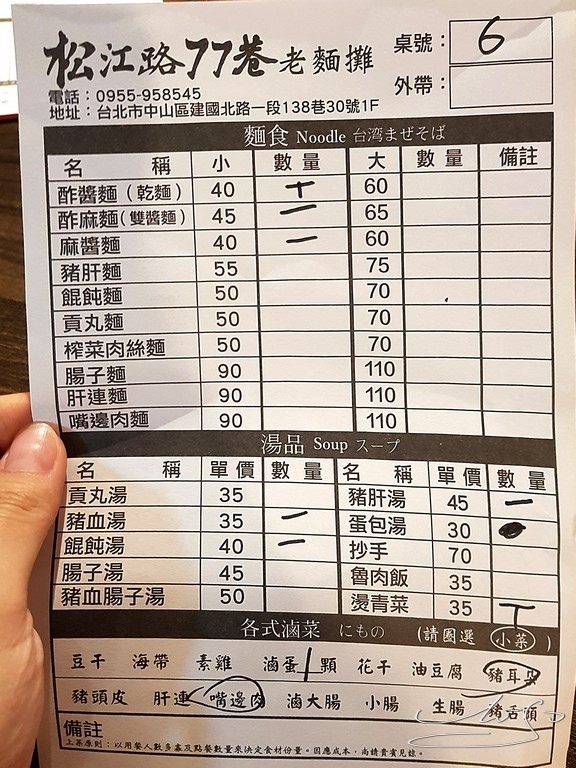 松江路77巷老麵攤
桌號： 6
外帶：
電話：0955-958545
地址：台北市中山區建國北路一段138巷30號1F
麵食 Noodle 台湾まぜそば
名 稱 小 數量 大 數量 備註
酢醬麵（乾麵） 40 一 60
酢麻麵(雙醬麵) 45 一 65
麻醬麵 40 一 60
豬肝麵 55 75
餛飩麵 50 70
貢丸麵 50 70
榨菜肉絲麵 50 70
腸子麵 90 110
肝連麵 90 110
嘴邊肉麵 90 110
湯品 Soup スープ
名 稱 單價 數量 名 稱 單價 數量
貢丸湯 35 豬肝湯 45 一
豬血湯 35 一 蛋包湯 30
餛飩湯 40 一 抄手 70
腸子湯 45 魯肉飯 35
豬血腸子湯 50 燙青菜 35 T
各式滷菜 にもの （請圈選 小菜 ）
豆干 海帶 素雞 滷蛋 1 顆 花干 油豆腐 豬耳朵
豬頭皮 肝連 嘴邊肉 滷大腸 小腸 生腸 豬舌頭
備註
上菜原則：以用餐人數多寡及點餐數量來決定食材份量。因應成本，尚請貴賓見諒。